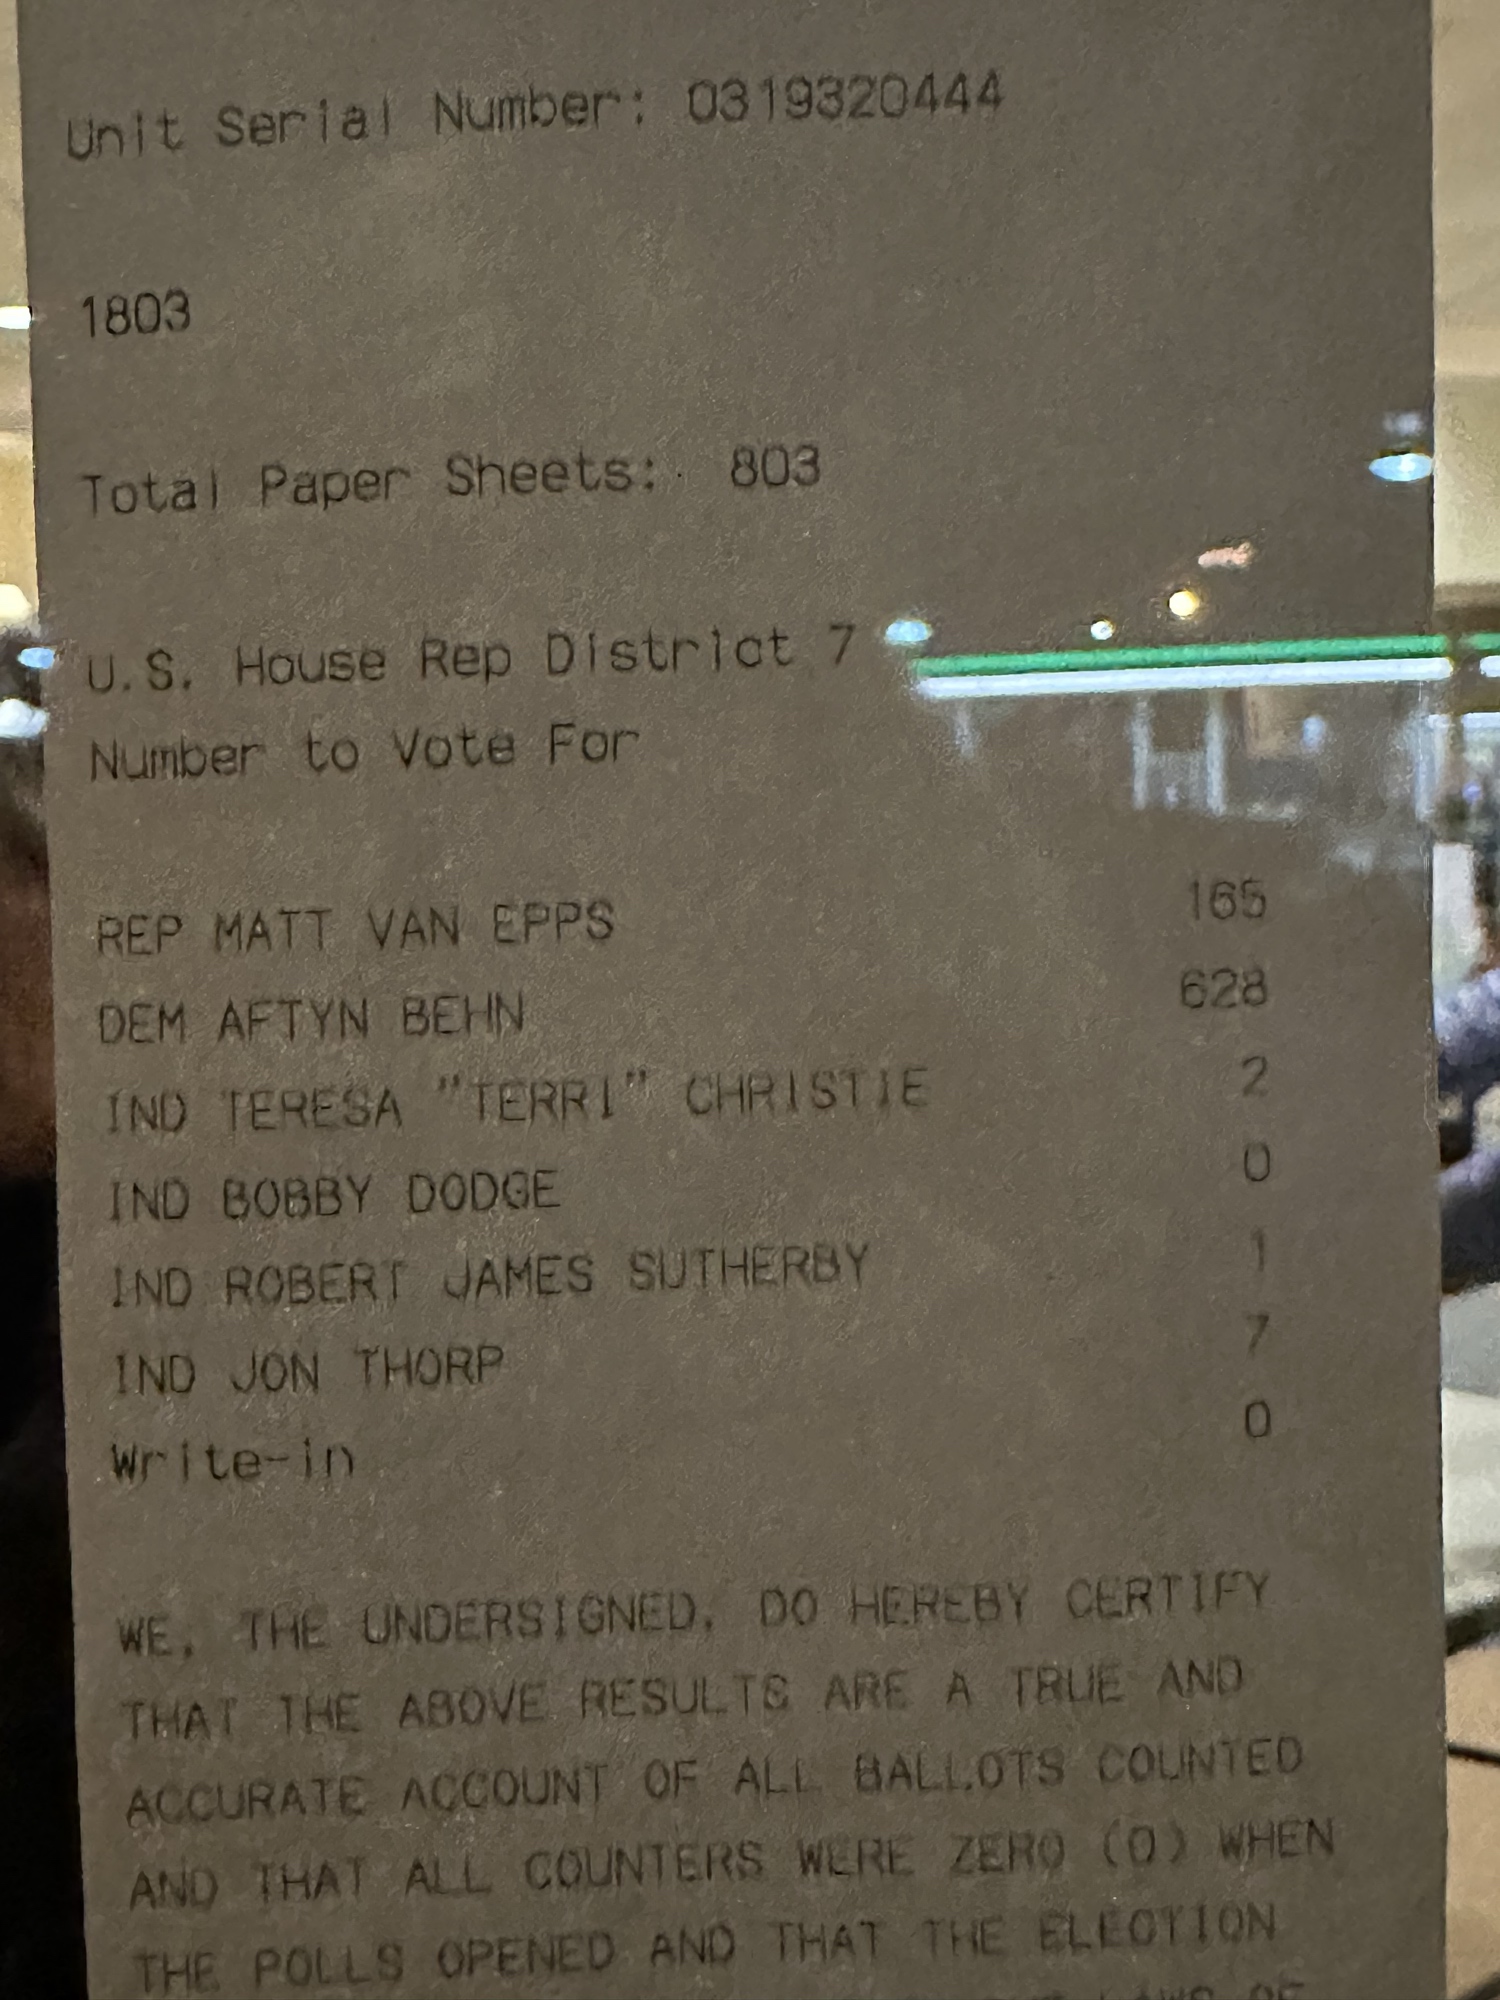 Unit Serial Number: 0319320444
1803
Total Paper Sheets: 803
U.S. House Rep District 7
Number to Vote For
REP MATT VAN EPPS 165
DEM AFTYN BEHN 628
IND TERESA "TERRI" CHRISTIE 2
IND BOBBY DODGE 0
IND ROBERT JAMES SUTHERBY 1
IND JON THORP 7
Write-in 0
WE, THE UNDERSIGNED, DO HEREBY CERTIFY
THAT THE ABOVE RESULTS ARE A TRUE AND
ACCURATE ACCOUNT OF ALL BALLOTS COUNTED
AND THAT ALL COUNTERS WERE ZERO (0) WHEN
THE POLLS OPENED AND THAT THE ELECTION
LAWS OF